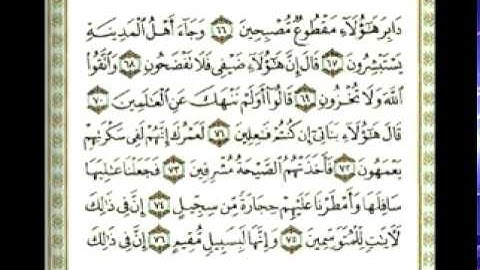 دَابِرَ هَٰٓؤُلَآءِ مَقْطُوعٌ مُّصْبِحِينَ ﴿٦٦﴾ وَجَآءَ أَهْلُ ٱلْمَدِينَةِ
يَسْتَبْشِرُونَ ﴿٦٧﴾ قَالَ إِنَّ هَٰٓؤُلَآءِ ضَيْفِى فَلَا تَفْضَحُونِ ﴿٦٨﴾ وَٱتَّقُوا۟
ٱللَّهَ وَلَا تُخْزُونِ ﴿٦٩﴾ قَالُوٓا۟ أَوَلَمْ نَنْهَكَ عَنِ ٱلْعَٰلَمِينَ ﴿٧٠﴾
قَالَ هَٰٓؤُلَآءِ بَنَاتِىٓ إِن كُنتُمْ فَٰعِلِينَ ﴿٧١﴾ لَعَمْرُكَ إِنَّهُمْ لَفِى سَكْرَتِهِمْ
يَعْمَهُونَ ﴿٧٢﴾ فَأَخَذَتْهُمُ ٱلصَّيْحَةُ مُشْرِقِينَ ﴿٧٣﴾ فَجَعَلْنَا عَٰلِيَهَا
سَافِلَهَا وَأَمْطَرْنَا عَلَيْهِمْ حِجَارَةً مِّن سِجِّيلٍ ﴿٧٤﴾ إِنَّ فِى ذَٰلِكَ
لَءَايَٰتٍ لِّلْمُتَوَسِّمِينَ ﴿٧٥﴾ وَإِنَّهَا لَبِسَبِيلٍ مُّقِيمٍ ﴿٧٦﴾ إِنَّ فِى ذَٰلِكَ